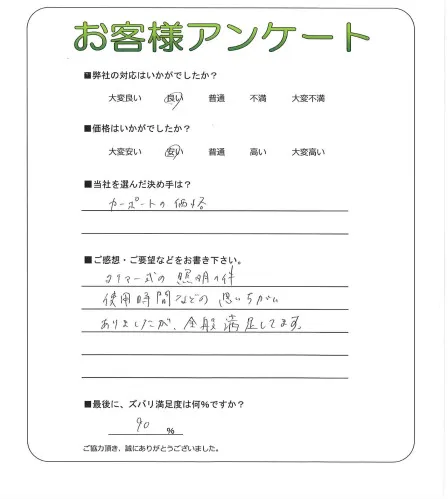 お客様アンケート
■弊社の対応はいかがでしたか？
大変良い 良い 普通 不満 大変不満
■価格はいかがでしたか？
大変安い 安い 普通 高い 大変高い
■当社を選んだ決め手は？
カーポートの価格
■ご感想・ご要望などをお書き下さい。
タイマー式の照明の件
使用時間などの思いちがい
ありましたが、全般満足してます。
■最後に、ズバリ満足度は何％ですか？
90 ％
ご協力頂き、誠にありがとうございました。